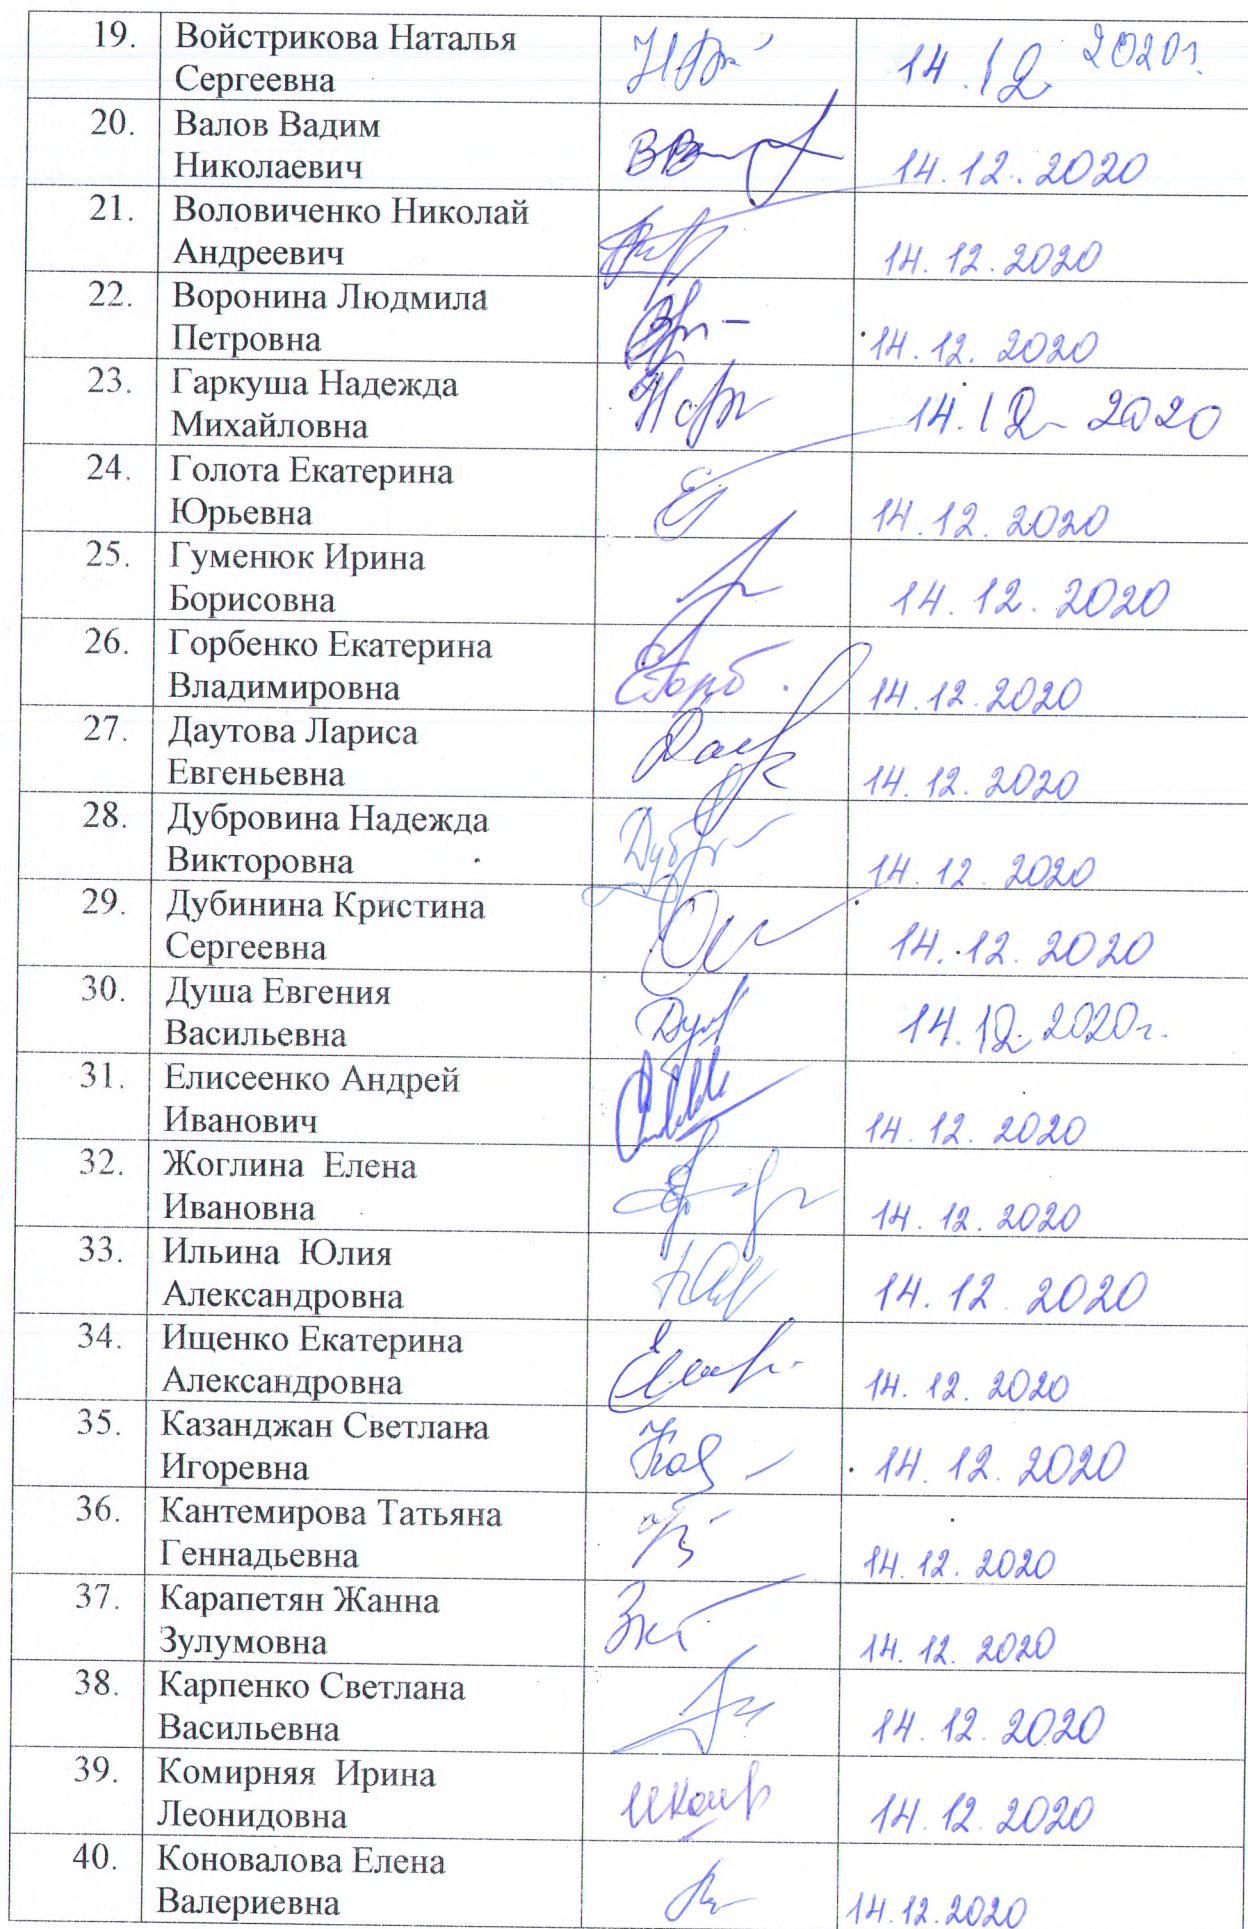 19. Войстрикова Наталья 14.12 2020г.
Сергеевна
20. Валов Вадим
Николаевич 14.12.2020
21. Воловиченко Николай
Андреевич 14.12.2020
22. Воронина Людмила
Петровна 14.12.2020
23. Гаркуша Надежда
Михайловна 14.12-2020
24. Голота Екатерина
Юрьевна 14.12.2020
25. Гуменюк Ирина
Борисовна 14.12.2020
26. Горбенко Екатерина
Владимировна 14.12.2020
27. Даутова Лариса
Евгеньевна 14.12.2020
28. Дубровина Надежда
Викторовна 14.12.2020
29. Дубинина Кристина
Сергеевна 14.12.2020
30. Душа Евгения
Васильевна 14.12.2020г.
31. Елисеенко Андрей
Иванович 14.12.2020
32. Жоглина Елена
Ивановна 14.12.2020
33. Ильина Юлия
Александровна 14.12.2020
34. Ищенко Екатерина
Александровна 14.12.2020
35. Казанджан Светлана
Игоревна 14.12.2020
36. Кантемирова Татьяна
Геннадьевна 14.12.2020
37. Карапетян Жанна
Зулумовна 14.12.2020
38. Карпенко Светлана
Васильевна 14.12.2020
39. Комирняя Ирина
Леонидовна 14.12.2020
40. Коновалова Елена
Валериевна 14.12.2020